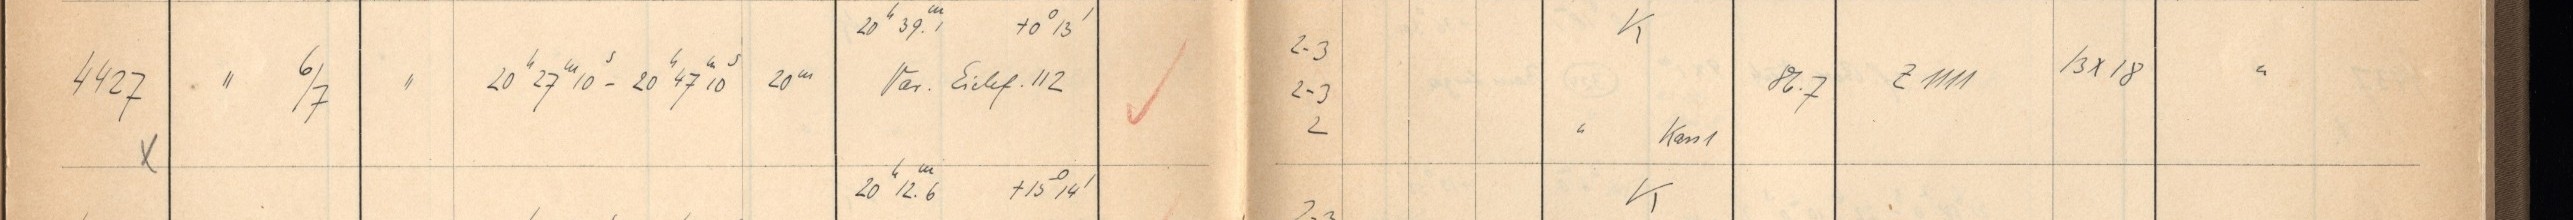 20ʰ39.ᵐ1 +0°13′ K
2-3
4427 " 6/7 " 20ʰ27ᵐ10ˢ - 20ʰ47ᵐ10ˢ 20ᵐ Var. Eichf. 112 2-3 86.7 Z 1111 13x18 "
2 " Kass1
X
20ʰ12.ᵐ6 +15°14′ K
2-3